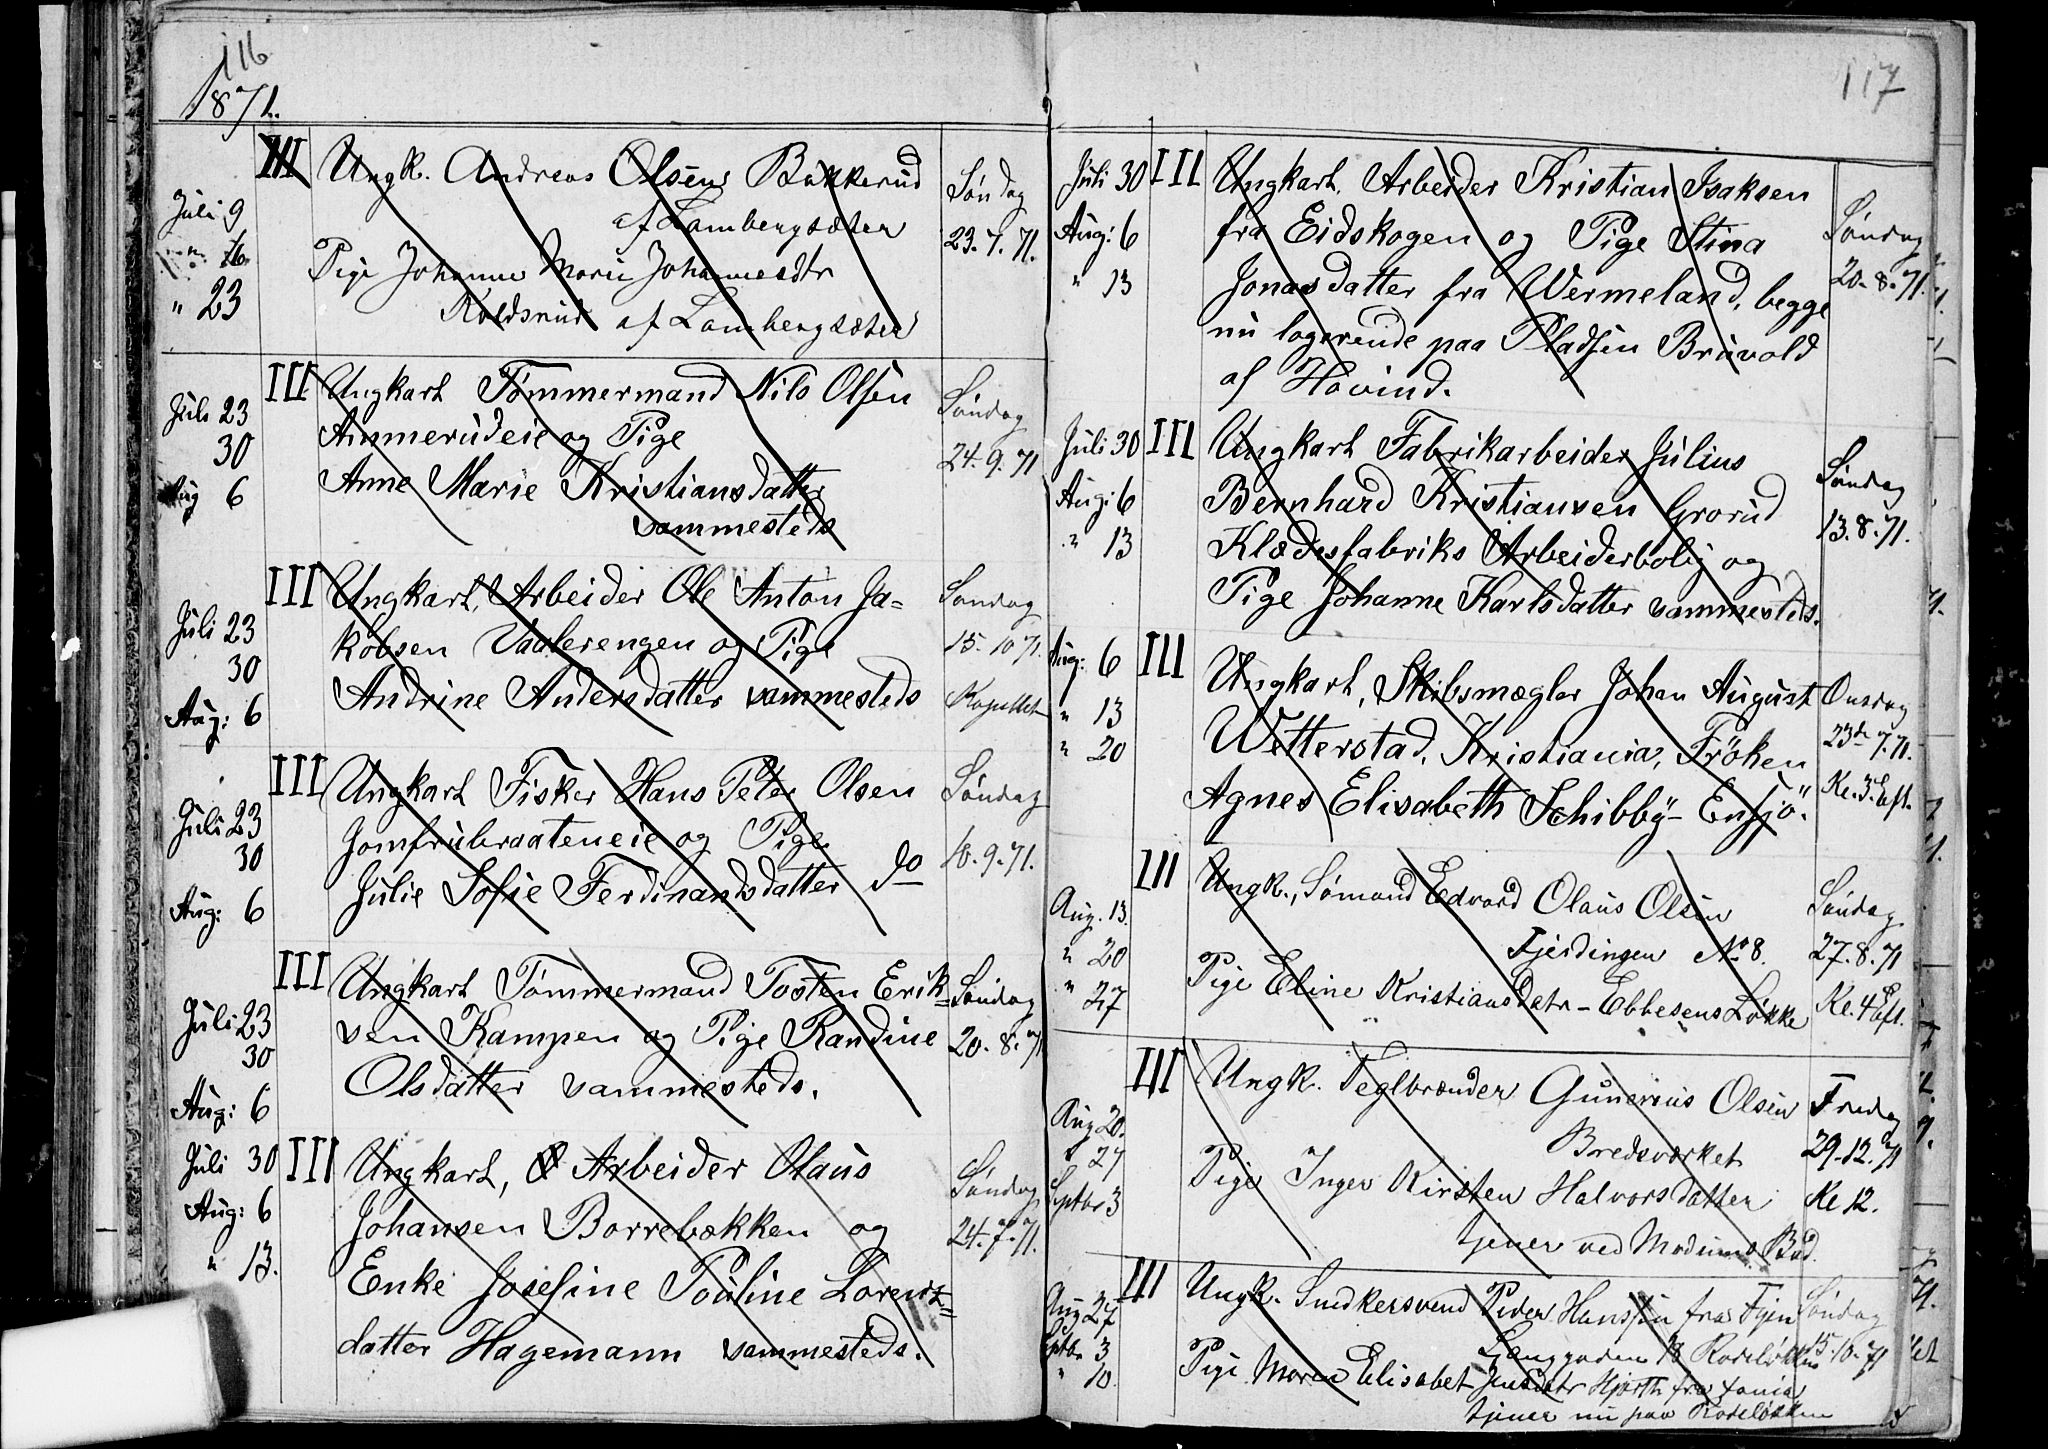 116
1871.
III Ungk. Andreas Olsen Bakkerud
af Lambergsæter
Juli 9
" 16
" 23
Pige Johanne Marie Johannesdtr
af Lambergsæter
Søndag
23.7.71.
III Ungkarl Tømmermand Nils Olsen
Ammerudeie og Pige
Anne Marie Kristiansdatter
sammesteds
Juli 23
30
Aug 6
Søndag
24.9.71
III Ungkarl, Arbeider Ole Anton Ja-
kobsen Vaalerengen og Pige
Andrine Andersdatter sammesteds
Juli 23
30
Aug: 6
Søndag
15.10 71.
Kapellet
III Ungkarl Fisker Hans Peter Olsen
Jomfrubraateneie og Pige
Julie Sofie Ferdinandsdatter do
Juli 23
30
Aug: 6
Søndag
10.9.71.
III Ungkarl Tømmermand Tosten Erik=
sen Kampen og Pige Randine
Olsdatter sammesteds.
Juli 23
30
Aug: 6
Søndag
20.8.71
III Ungkarl, Arbeider Olaus
Johansen Borrebækken og
Enke Josefine Pouline Lorentz=
datter Hagemann sammesteds.
Juli 30
Aug: 6
" 13.
Søndag
24.7.71.
117
III Ungkarl. Arbeider Kristian Isaksen
fra Eidskogen og Pige Stina
Jonasdatter fra Wermeland, begge
nu logerende paa Pladsen Bruvold
af Hovind.
Juli 30
Aug: 6
" 13
Søndag
20.8.71.
III Ungkarl Fabrikarbeider Julius
Bernhard Kristiansen Grorud
Klædesfabriks Arbeiderbolig og
Pige Johanne Karlsdatter sammesteds.
Juli 30
Aug: 6
" 13
Søndag
13.8.71.
III Ungkarl, Skibsmægler Johan August
Wetterstad, Kristiania, Frøken
Agnes Elisabeth Schibbÿ- Ensjö.
Aug: 6
" 13
" 20
Onsdag
23de 7.71.
Kl. 3 Eft.
III Ungk., Sømand Edvard Olaus Olsen
Fjerdingen No 8.
Pige Eline Kristiansdatr - Ebbesens Løkke
Aug. 13.
" 20
" 27
Søndag
27.8.71
Kl. 4 Eft.
III Ungk. Teglbrænder Gunerius Olsen
Bredsværket
Pige Inger Kirsten Halvorsdatter
tjener ved Modums Bad.
Aug 20.
" 27
Septbr 3
Fredag
29.12.71
Kl 12.
III Ungk. Smedkersvend Peder Hanssen fra Fyen
Langgaden 13 Rodeløkken
Pige Maren Elisabet Jensdatr Hjorth fra Xania
tjener nu paa Rodeløkken
Aug 27
Septbr 3
" 10.
Søndag
15.10.71